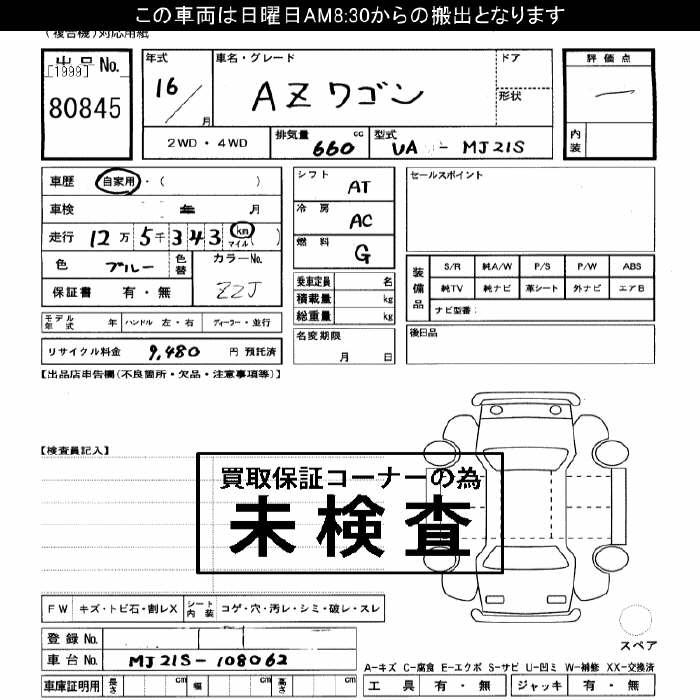 この車両は日曜日AM8:30からの搬出となります
(複合機)対応用紙
出品No. [1999] 80845
年式 16 / 月
車名・グレード AZワゴン
ドア
形状
評価点 ―
内装
2WD・4WD
排気量 660 cc
型式 UA - MJ21S
車歴 自家用・( )
車検 年 月
走行 12万5千343 km マイル ( )
色 ブルー 色替
カラーNo. ZZJ
保証書 有・無
シフト AT
冷房 AC
燃料 G
乗車定員 名
積載量 kg
総重量 kg
名変期限 月 日
セールスポイント
装備品 S/R 純A/W P/S P/W ABS
純TV 純ナビ 革シート 外ナビ エアB
ナビ型番:
後日品
モデル年式 年 ハンドル 左・右 ディーラー・並行
リサイクル料金 9,480 円 預託済
【出品店申告欄(不良箇所・欠品・注意事項等)】
【検査員記入】
買取保証コーナーの為
未検査
FW キズ・トビ石・割レX シート内装 コゲ・穴・汚レ・シミ・破レ・スレ
登録No.
車台No. MJ21S-108062
車庫証明用 長さ cm 幅 cm 高さ cm
スペア
A-キズ C-腐食 E-エクボ S-サビ U-凹ミ W-補修 XX-交換済
工具 有・無 ジャッキ 有・無